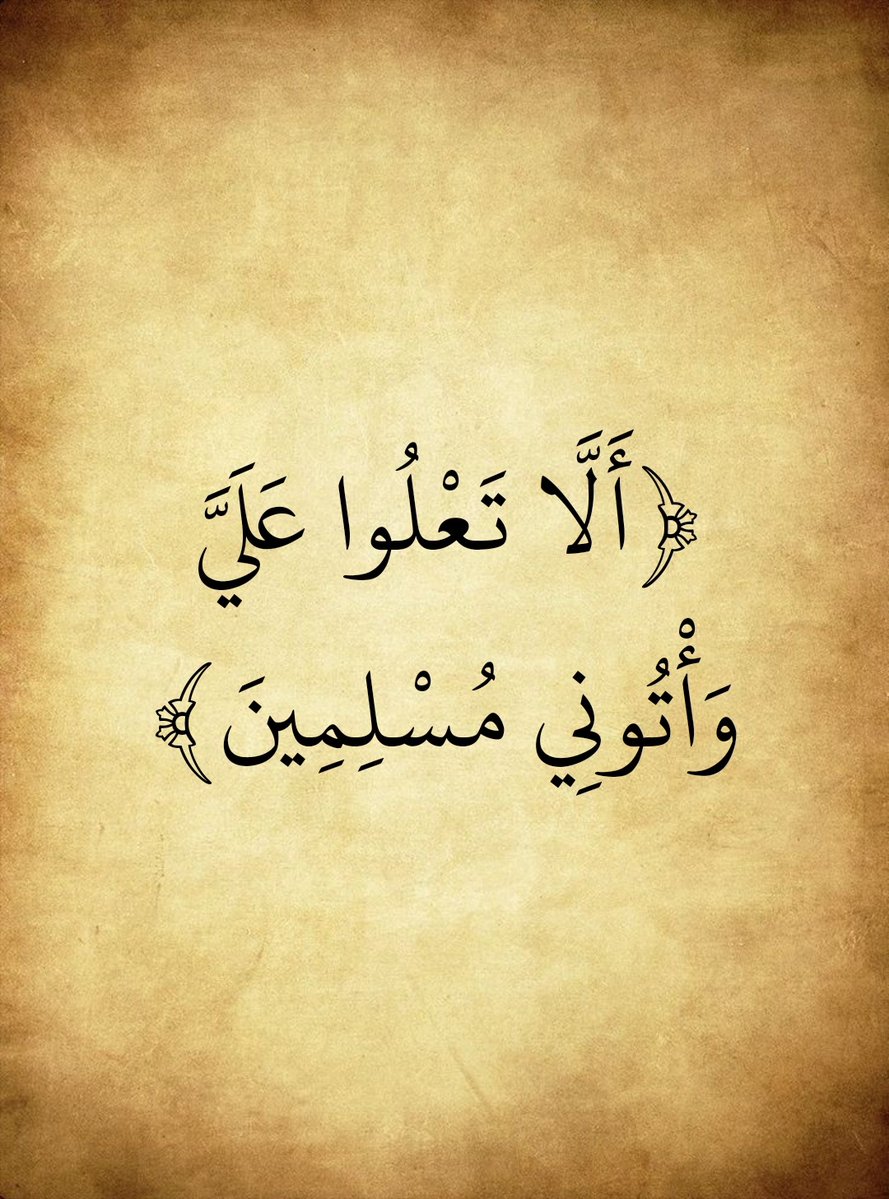 ﴿أَلَّا تَعْلُوا عَلَيَّ
وَأْتُونِي مُسْلِمِينَ﴾